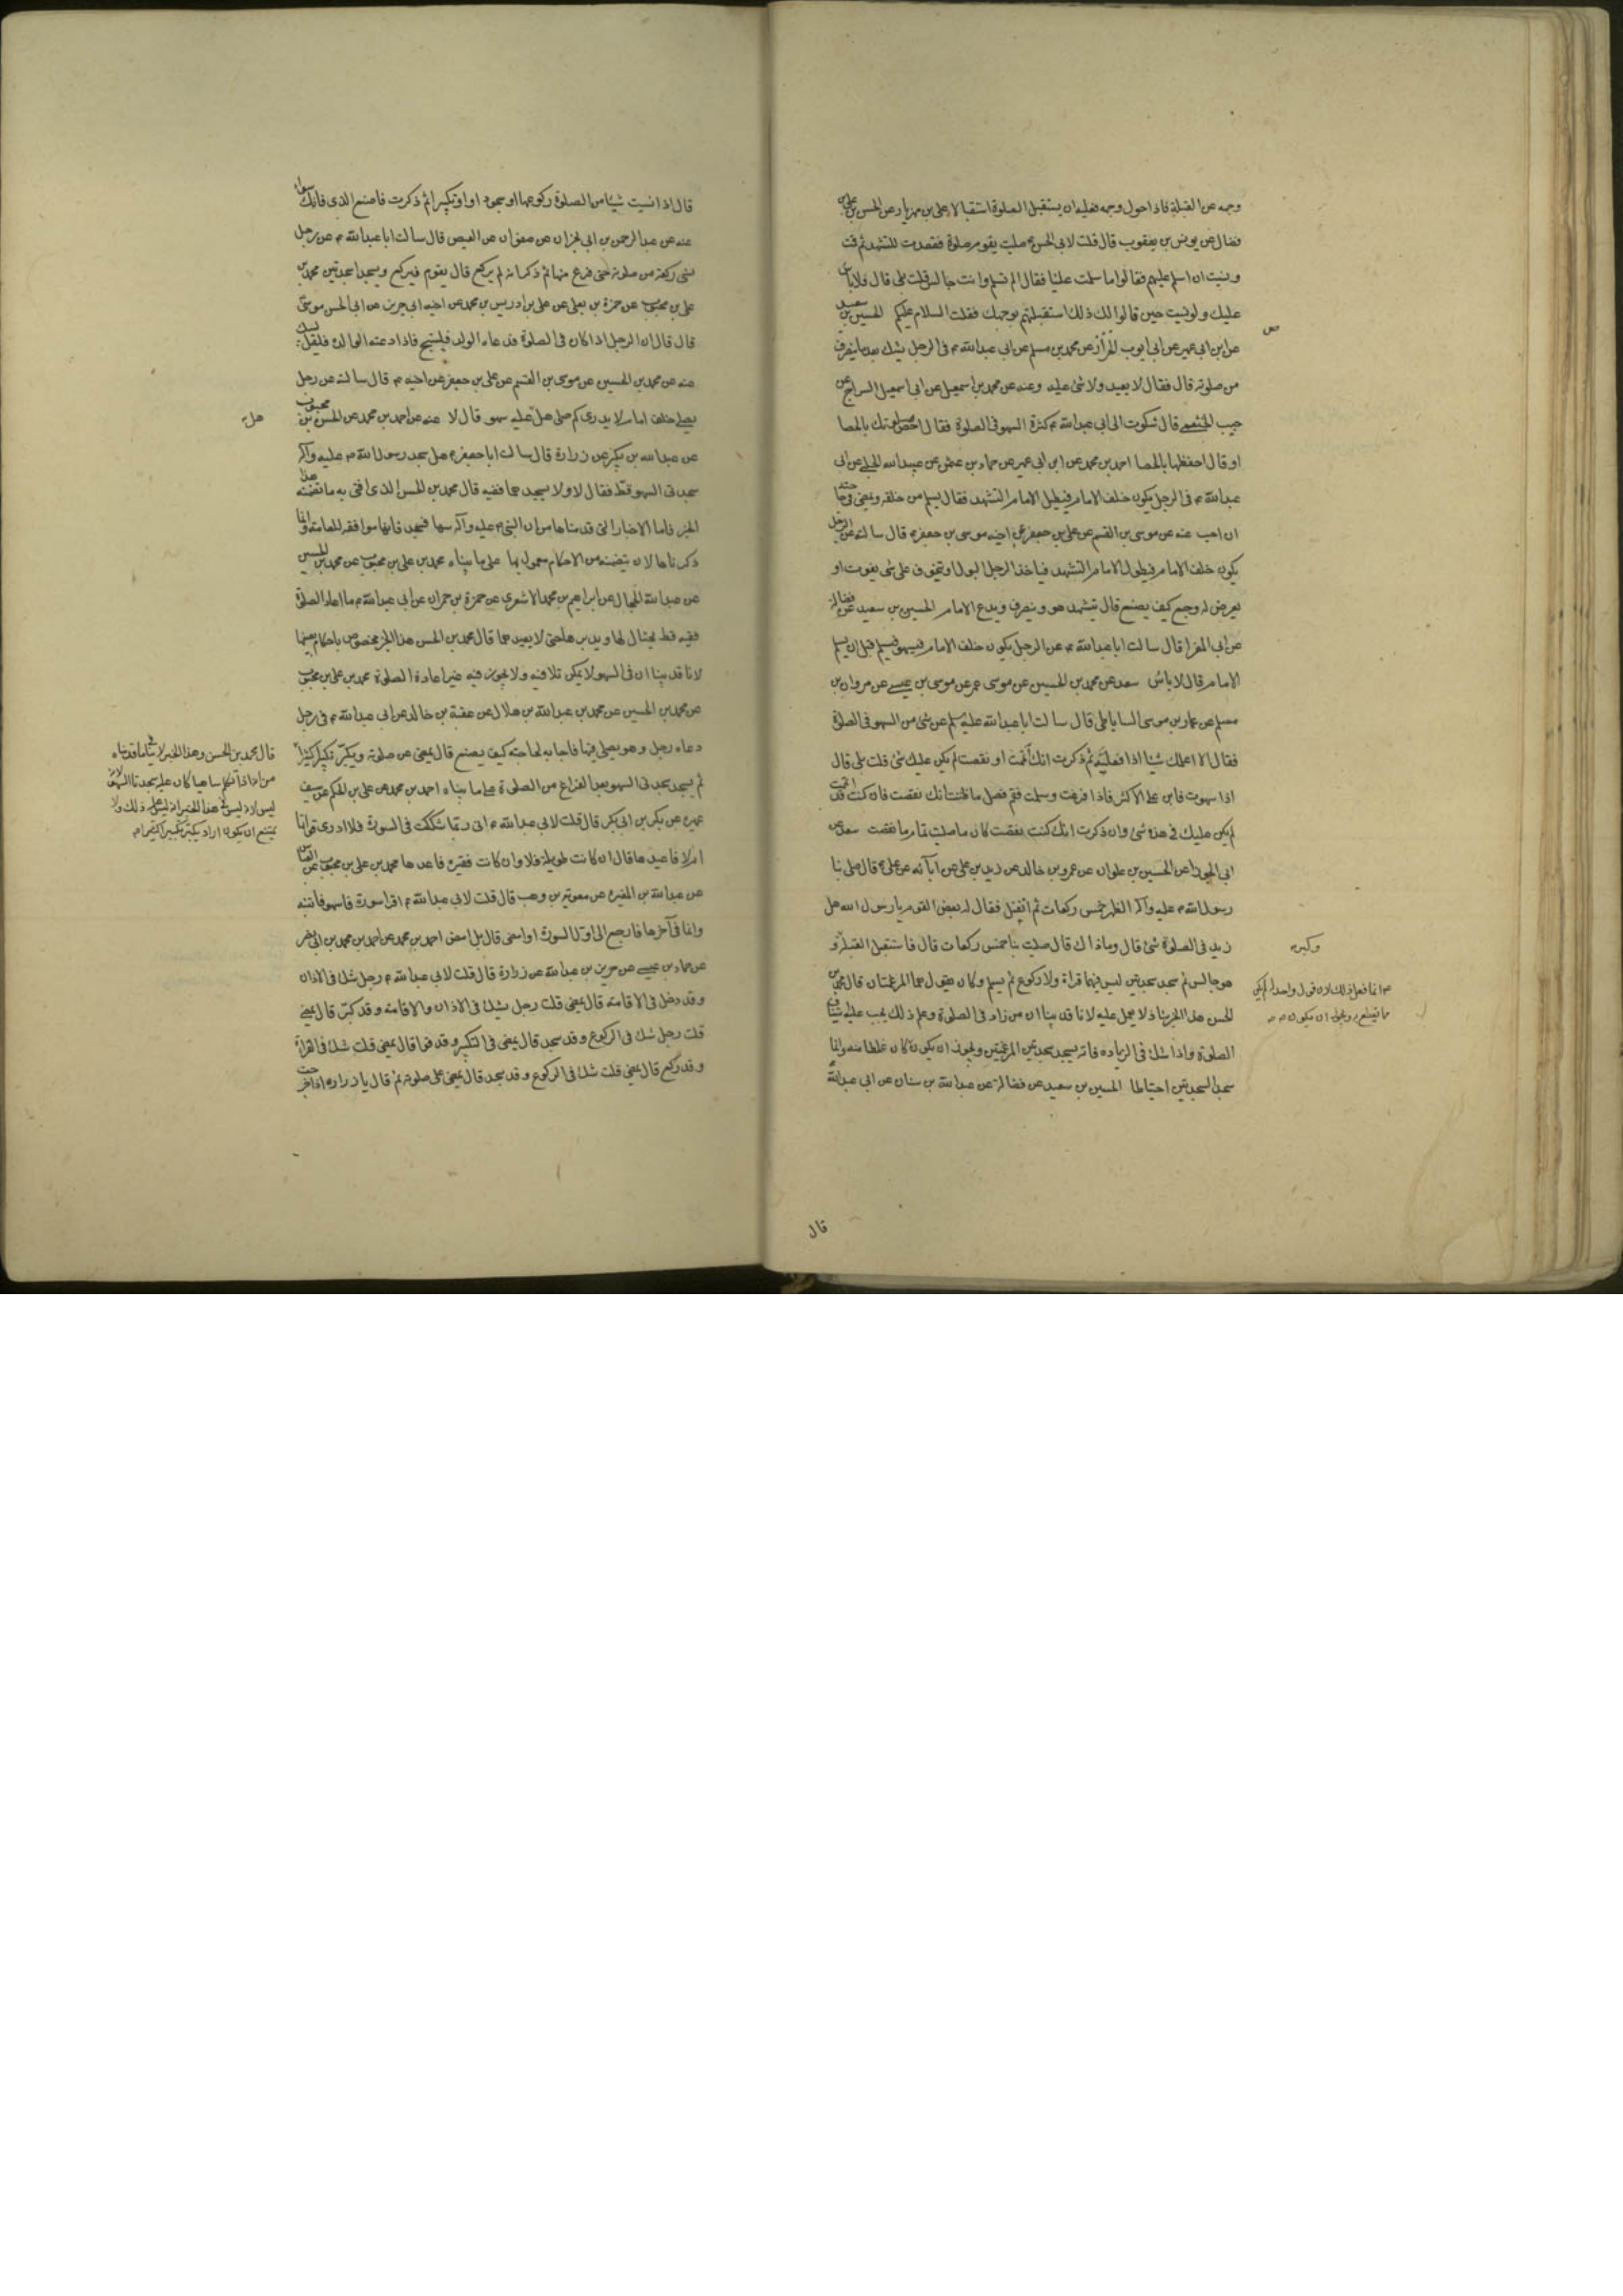 وجهه عن القبلة فاذا حول وجهه فعليه ان يستقبل الصلوة استقبالا على بن مهزيار عن الحسن بن على بن
فضال عن يونس بن يعقوب قال قلت لابى الحسن ع صليت بقوم صلوة فقعدت للتشهد ثم قمت
ونسيت ان اسلم عليهم فقالوا ما سلمت علينا فقال الم تسلم وانت جالس قلت بلى قال فلا باس
عليك ولو نسيت حين قالوا لك ذلك استقبلتهم بوجهك فقلت السلام عليكم الحسين بن سعيد
عن ابن ابى عمير عن ابى ايوب الخزاز عن محمد بن مسلم عن ابى عبد الله ع فى الرجل يشك بعد ما ينصرف
من صلوته قال فقال لا يعيد ولا شئ عليه وعنه عن محمد بن اسمعيل عن ابى اسمعيل السراج عن
حبيب الخثعمى قال شكوت الى ابى عبد الله ع كثرة السهو فى الصلوة فقال احص صلوتك بالحصا
او قال احفظها بالحصا احمد بن محمد عن ابن ابى عمير عن حماد بن عثمن عن عبيد الله الحلبى عن ابى
عبد الله ع فى الرجل يكون خلف الامام فيطيل الامام التشهد فقال يسلم من خلفه ويمضى فى حاجته
ان احب عنه عن موسى بن القسم عن على بن جعفر عن اخيه موسى بن جعفر ع قال سالته عن الرجل
يكون خلف الامام فيطول الامام التشهد فياخذ الرجل البول او يتخوف على شى يفوت او
يعرض له وجع كيف يصنع قال يتشهد هو وينصرف ويدع الامام الحسين بن سعيد عن فضالة
عن ابى المغرا قال سالت ابا عبد الله ع عن الرجل يكون خلف الامام فيسهو فيسلم قبل ان يسلم
الامام قال لا باس سعد عن محمد بن الحسين عن موسى عمر عن موسى بن عيسى عن مروان بن
مسلم عن عمار بن موسى الساباطى قال سالت ابا عبد الله عليه سلم عن شئ من السهو فى الصلوة
فقال الا اعلمك شيا اذا فعلته ثم ذكرت انك اتممت او نقصت لم يكن عليك شئ قلت بلى قال
اذا سهوت فابن على الاكثر فاذا فرغت وسلمت فقم فصل ما ظننت انك نقصت فان كنت قد اتممت
لم يكن عليك فى هذه شئ وان ذكرت انك كنت نقصت كان ما صليت تمام ما نقصت سعد عن
ابى الجوزا عن الحسين بن علوان عن عمرو بن خالد عن زيد بن على عن ابآئه عن على ع قال صلى بنا
رسول الله ص عليه وآله الظهر خمس ركعات ثم انفتل فقال له بعض القوم يا رسول الله هل
زيد فى الصلوة شئ قال وما ذاك قال صليت بنا خمس ركعات قال فاستقبل القبلة و
وكبر ع
هو جالس ثم سجد سجدتين ليس فيهما قراة ولا ركوع ثم يسلم وكان يقول هما المرغمتان قال محمد بن
الحسن هذا الخبر شاذ لا يعمل عليه لانا قد بينا ان من زاد فى الصلوة وعلم ذلك يجب عليه استيناف
الصلوة واذا شك فى الزياده فانه يسجد سجدتين المرغمتين ويجوز ان يكون كان غلطا منه وانما
سجد السجدتين احتياطا الحسين بن سعيد عن فضالة عن عبد الله بن سنان عن ابى عبد الله ع
انما فعل ذلك لان قول واحد لم يكن
مما يقطع به ويجوز ان يكون
قال
قال اذا نسيت شيئا من الصلوة ركوعها او سجود او تكبيرا ثم ذكرت فاصنع الذى فاتك سوا
عنه عن عبد الرحمن بن ابى نجران عن صفوان عن العيص قال سالت ابا عبد الله ع عن رجل
نسى ركعة من صلوته حتى فرغ منها ثم ذكر انه لم يركع قال يقوم فيركع ويسجد سجدتين محمد بن
على بن محبوب عن حمزة بن يعلى عن على بن ادريس بن محمد عن اخيه ابى جرير عن ابى الحسن موسى ع
قال قال ان الرجل اذا كان فى الصلوة فدعاه الوالد فليسبح فاذا دعته الوالدة فليقل لبيك
عنه عن محمد بن الحسين عن موسى بن القسم عن على بن جعفر عن اخيه ع قال سالته عن رجل
يصلى خلف امام لا يدرى كم صلى هل عليه سهو قال لا عنه عن احمد بن محمد عن الحسن بن محبوب
هل
عن عبد الله بن بكير عن زرارة قال سالت ابا جعفر ع هل سجد رسول الله ص عليه وآله
سجدتى السهو قط فقال لا ولا يسجدهما فقيه قال محمد بن الحسن الذى افتى به ما تضمنه هذا
الخبر فاما الاخبار التى قدمناها من ان النبى ص عليه وآله سها فسجد فانها موافقة للعامة وانما
ذكرناها لان ما يتضمنه من الاحكام معمول بها على ما بيناه محمد بن على بن محبوب عن محمد بن الحسين
عن عبد الله الحجال عن ابراهيم بن محمد الاشعرى عن حمزة بن حمران عن ابى عبد الله ع ما اعاد الصلوة
فقيه قط يحتال لها ويدبرها حتى لا يعيدها قال محمد بن الحسن هذا الخبر مخصوص باحكام بعينها
لانا قد بينا ان فى السهو لا يمكن تلافيه ولا يجوز فيه غير اعادة الصلوة محمد بن على بن محبوب
عن محمد بن الحسين عن محمد بن عبد الله بن هلال عن عقبة بن خالد عن ابى عبد الله ع فى رجل
دعاه رجل وهو يصلى فسها فاجابه لحاجته كيف يصنع قال يمضى عن صلوته ويكبر تكبيرا كثيرا
ثم يسجد سجدتى السهو بعد الفراغ من الصلوة على ما بيناه احمد بن محمد عن على بن الحكم عن سيف بن
عميرة عن بكر بن ابى بكر قال قلت لابى عبد الله ع انى ربما شككت فى السورة فلا ادرى قراتها
ام لا فاعيدها قال ان كانت طويلة فلا وان كانت قصيره فاعدها محمد بن على بن محبوب عن العباس
عن عبد الله بن المغيره عن معويه بن وهب قال قلت لابى عبد الله ع اقرا سورة فاسهو فانتبه
وانا فى آخرها فارجع الى اول السورة او امضى قال بل امض احمد بن محمد عن احمد بن محمد بن ابى نصر
عن حماد بن عيسى عن حريز بن عبد الله عن زرارة قال قلت لابى عبد الله ع رجل شك فى الاذان
وقد دخل فى الاقامة قال يمضى قلت رجل يشك فى الاذان والاقامة وقد كبر قال يمضى
قلت رجل شك فى الركوع وقد سجد قال يمضى فى التكبير وقد قرا قال يمضى قلت شك فى القراة
وقد ركع قال يمضى قلت شك فى الركوع وقد سجد قال يمضى على صلوته ثم قال يا زراره اذا خرجت
قال محمد بن الحسن وهذا الخبر لا ينافى ما قدمناه
من انه اذا تكلم ساهيا كان عليه سجدتا السهو لانه
ليس لانه ليس فى هذا الخبر انه ليس عليه ذلك ولا
يمتنع ان يكون اراد يكبر تكبيرا كثيرا ثم